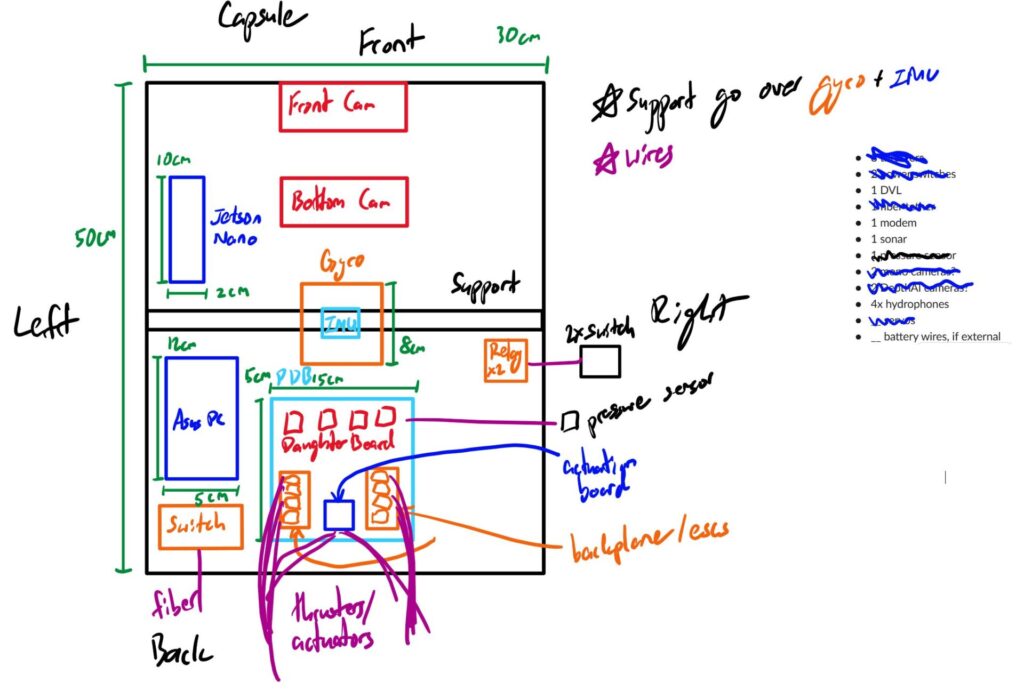 Capsule
Front
30cm
☆ Support go over Gyro + IMU
☆ Wires
Front Cam
Bottom Cam
10cm
Jetson
Nano
2cm
50cm
Gyro
IMU
8cm
Support
Left
Right
2x switch
Relay
x2
12cm
Asus PC
5cm
5cm
PDB
15cm
Daughter Board
pressure sensor
actuation
board
Switch
backplane/escs
fiber
thrusters/
actuators
Back
• 1 DVL
• 1 modem
• 1 sonar
• 1 pressure sensor
• 2 mono cameras?
• 2 DepthAI cameras?
• 4x hydrophones
• __ battery wires, if external